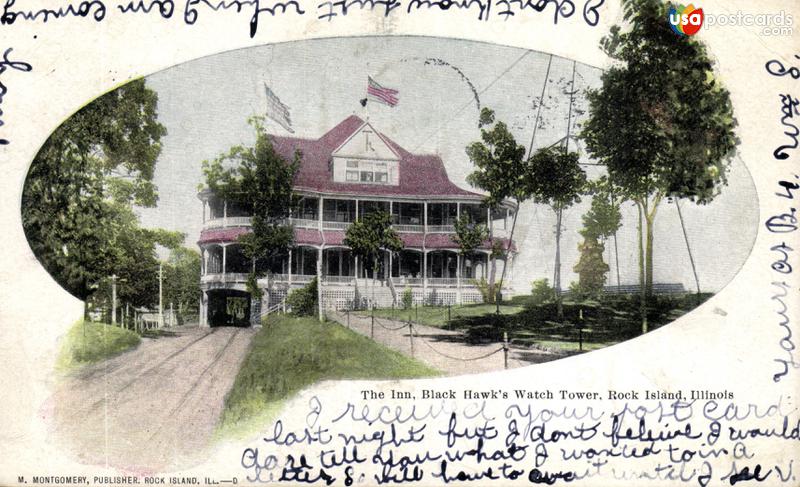 usapostcards.com
The Inn, Black Hawk's Watch Tower, Rock Island, Illinois
I received your post card
last night but I don't believe I would
dare tell you what I wanted to in a
letter so will have to await until I see
I don't know just when I am
coming
yours at
M. MONTGOMERY, PUBLISHER. ROCK ISLAND, ILL.—D